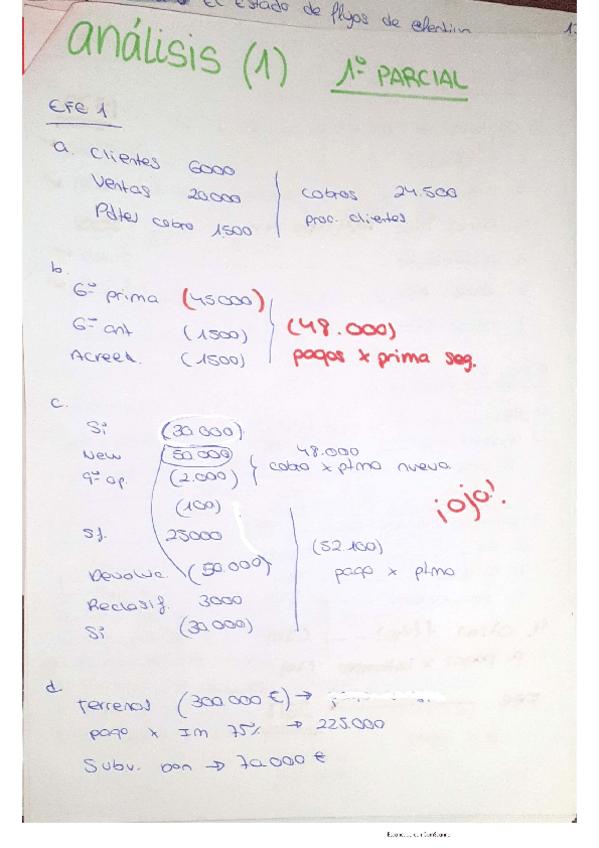 el estado de flujos de efectivo
1.
análisis (1) 1º PARCIAL
EFE 1
a. Clientes 6000
Ventas 20.000
Pdtes cobro 1500
cobros 24.500
proc. clientes
b.
Gº prima (45000)
Gº ant (1500)
Acreed. (1500)
(48.000)
pagos x prima seg.
c.
Si (30.000)
New (50.000)
gº op. (2.000)
48.000
cobro x ptmo nuevo
(100)
¡ojo!
Sf. 25000
(52.100)
pago x ptmo
Devoluc. (50.000)
Reclasif. 3000
Si (30.000)
d.
terrenos (300.000 €) →
pago x Im 75% → 225.000
Subv. don → 70.000 €